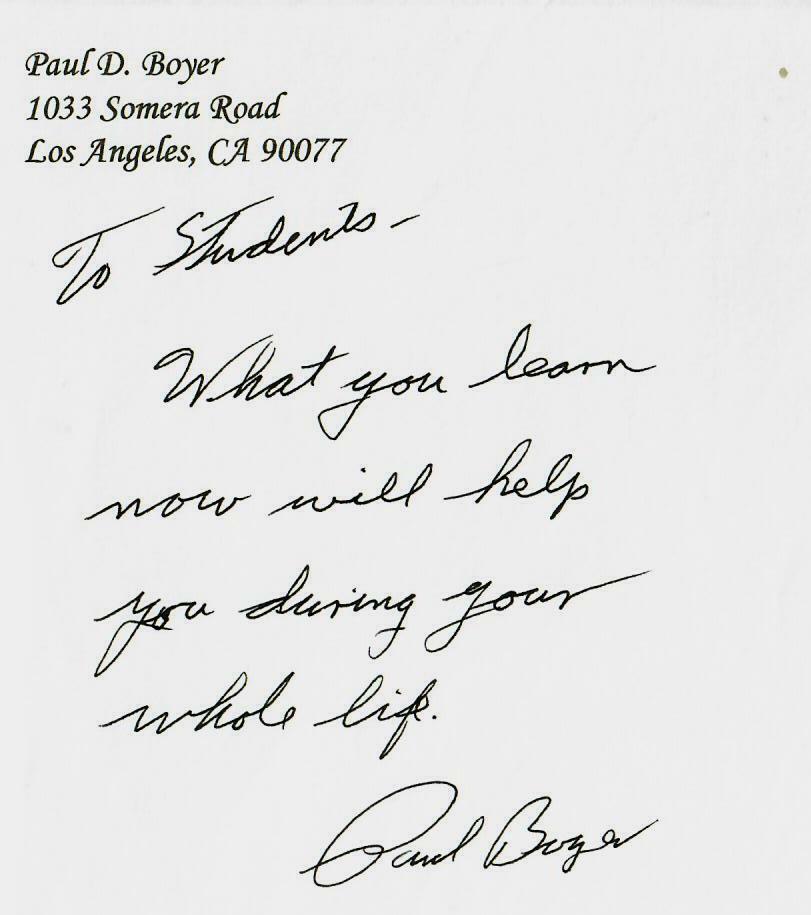 Paul D. Boyer
1033 Somera Road
Los Angeles, CA 90077
To Students-
What you learn
now will help
you during your
whole life.
Paul Boyer